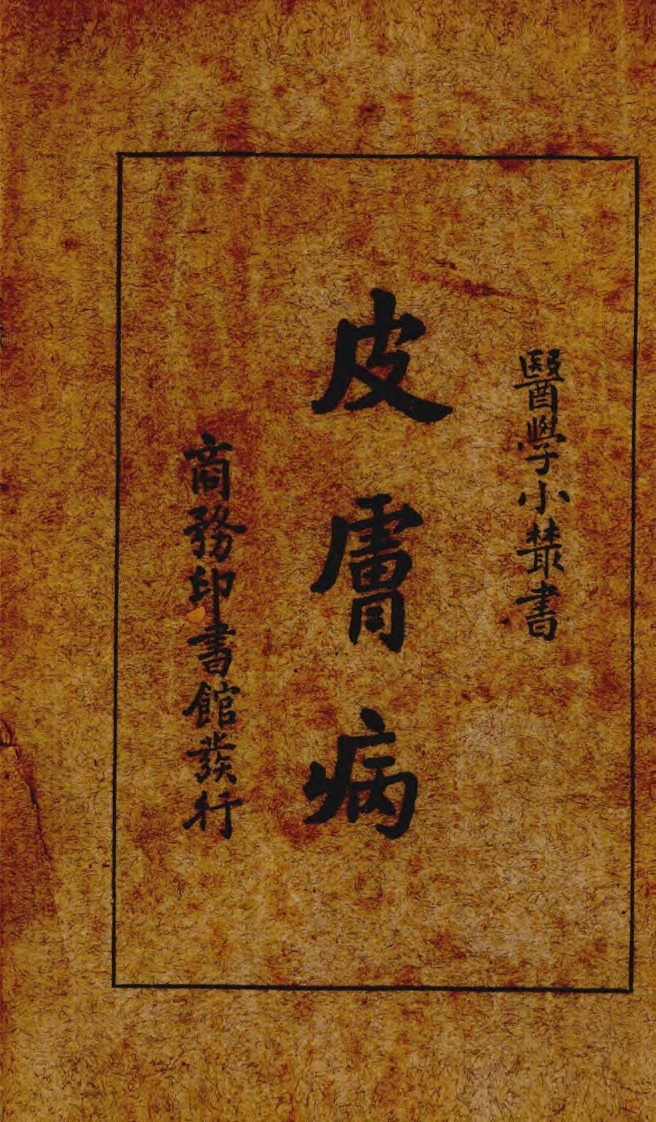 醫學小叢書
皮膚病
商務印書館發行